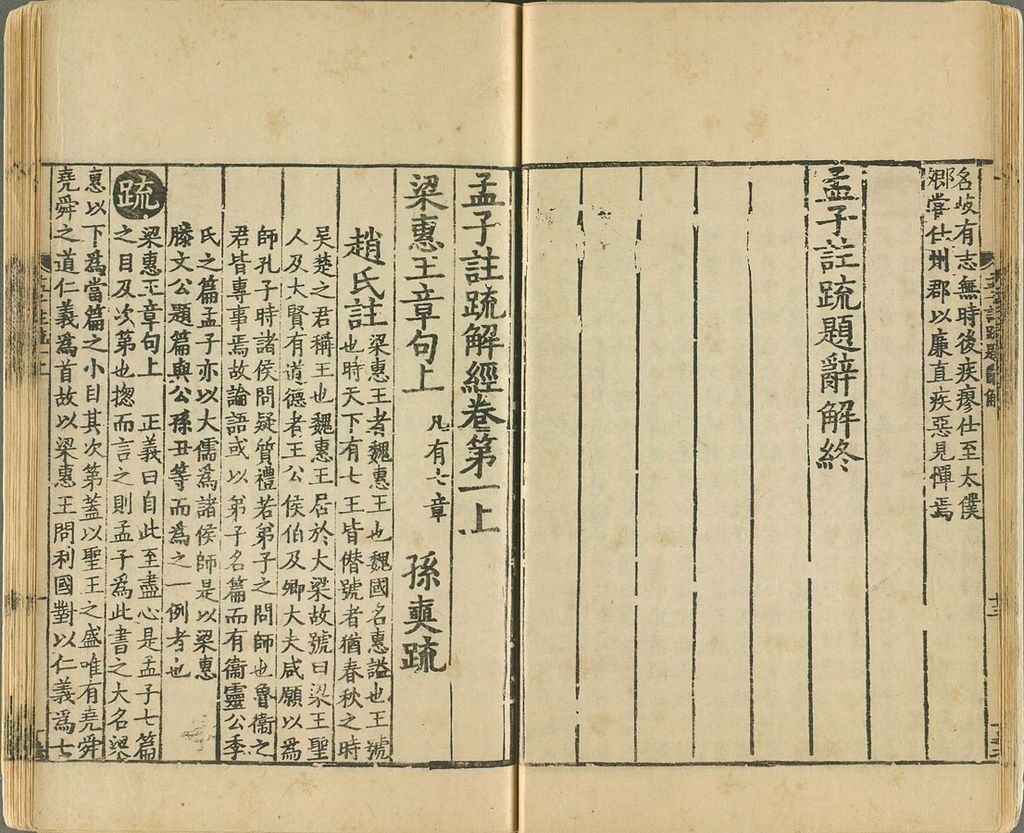 名岐有志無時後疾瘳仕至太僕
卿嘗仕州郡以廉直疾惡見憚焉
孟子註疏題辭解終
孟子註疏解經卷第一上
梁惠王章句上 凡有七章 孫奭疏
趙氏註 梁惠王者魏惠王也魏國名惠謚也王號
也時天下有七王皆僭號者猶春秋之時
吴楚之君稱王也魏惠王居於大梁故號曰梁王聖
人及大賢有道德者王公侯伯及卿大夫咸願以爲
師孔子時諸侯問疑質禮若弟子之問師也魯衞之
君皆專事焉故論語或以弟子名篇而有衞靈公季
氏之篇孟子亦以大儒爲諸侯師是以梁惠
滕文公題篇與公孫丑等而爲之一例者也
疏 梁惠王章句上 正義曰自此至盡心是孟子七篇
之目及次第也揔而言之則孟子爲此書之大名梁
惠以下爲當篇之小目其次第蓋以聖王之盛唯有堯舜
堯舜之道仁義爲首故以梁惠王問利國對以仁義爲七